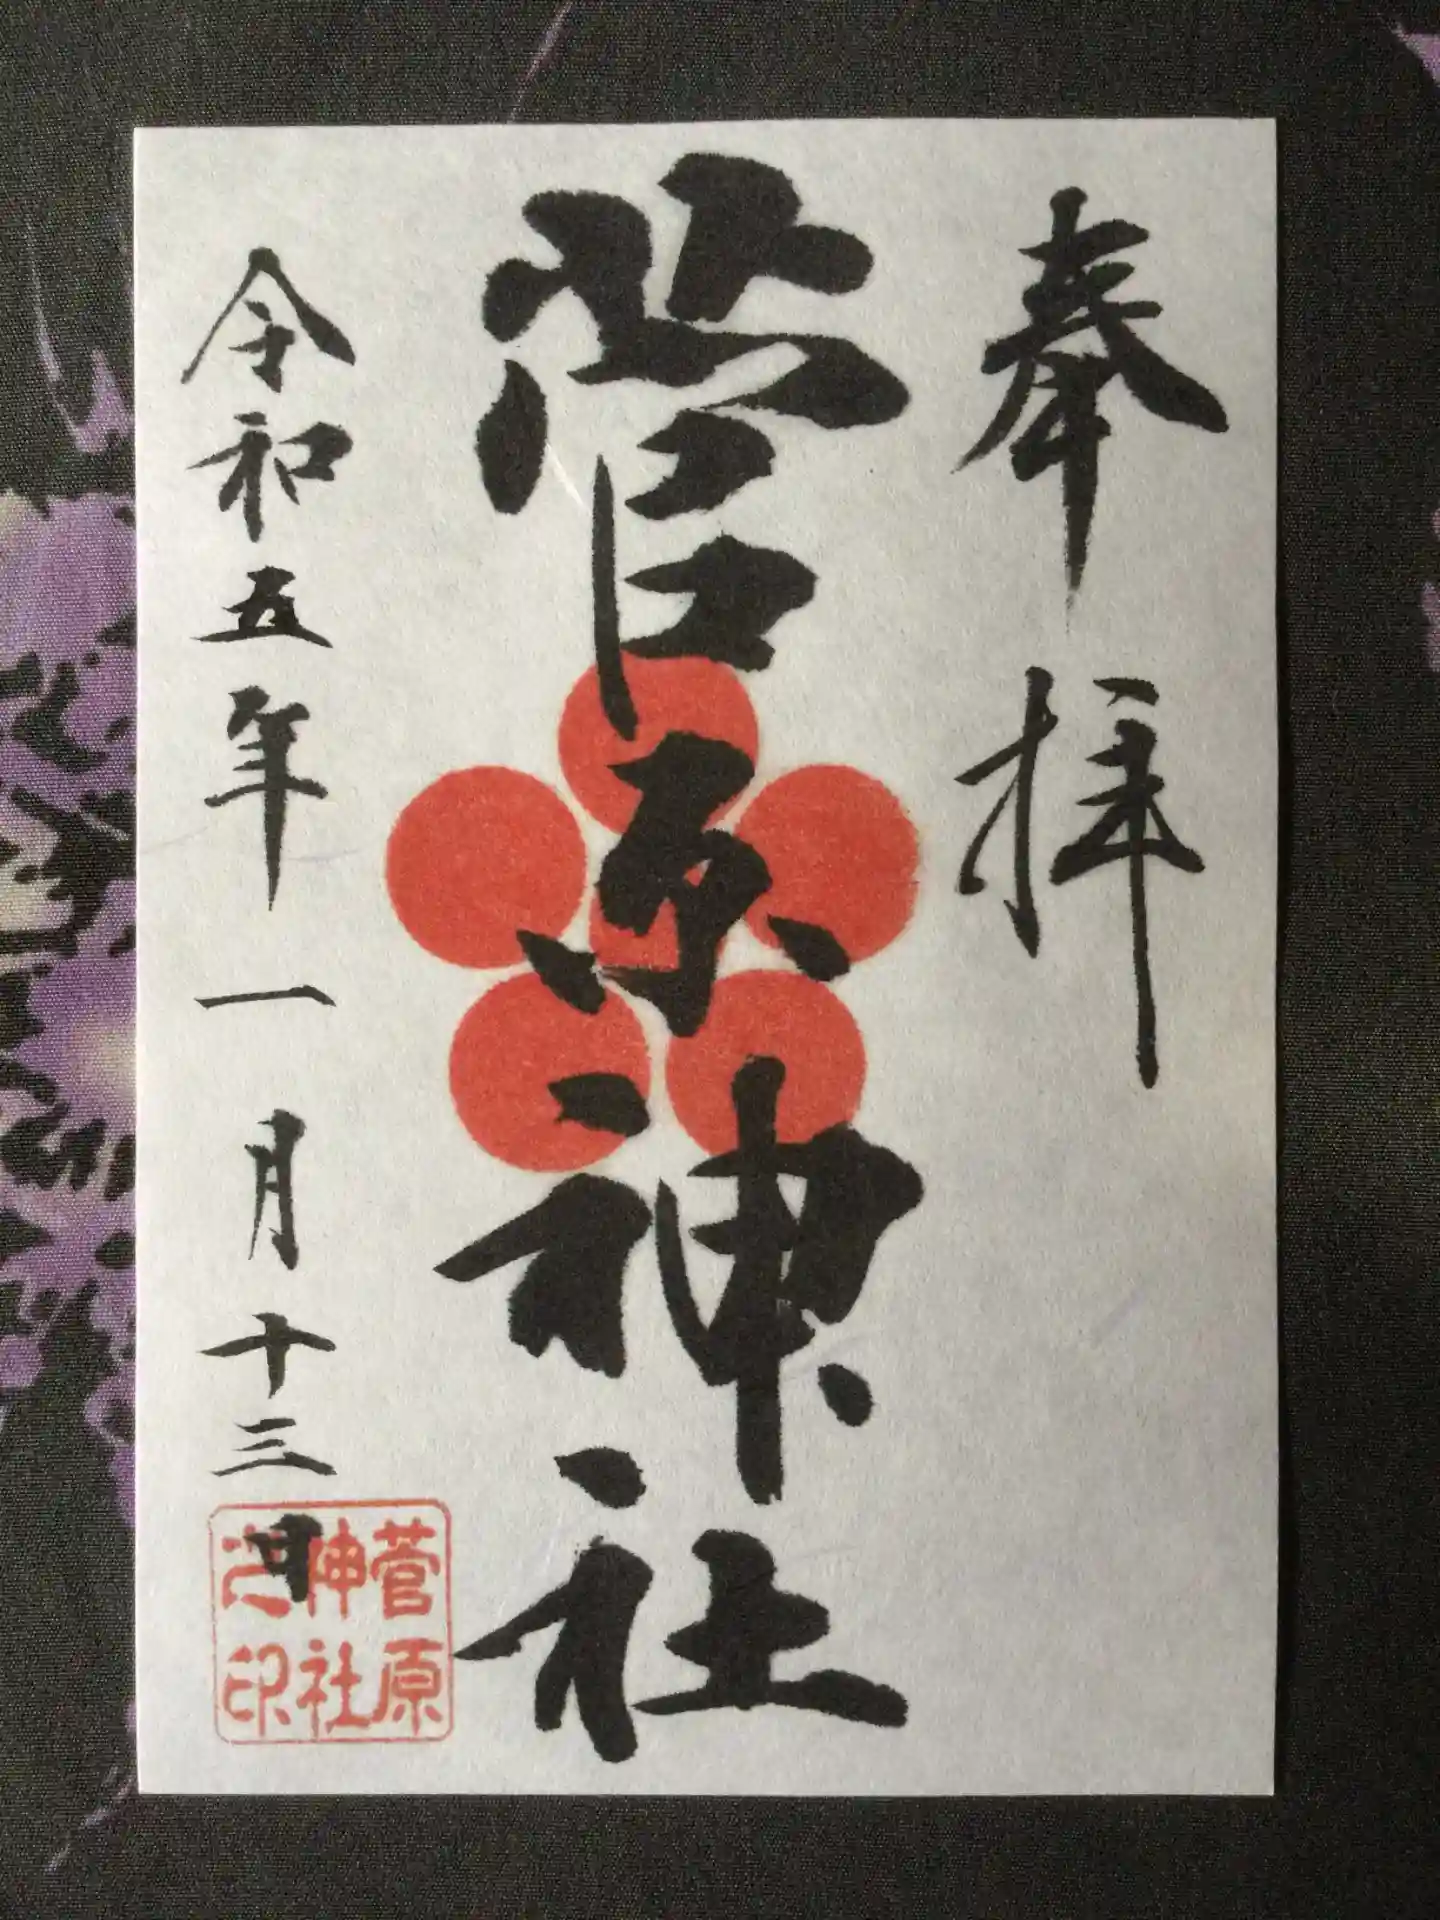 奉拝
菅原神社
令和五年一月十三日
菅原
神社
之印